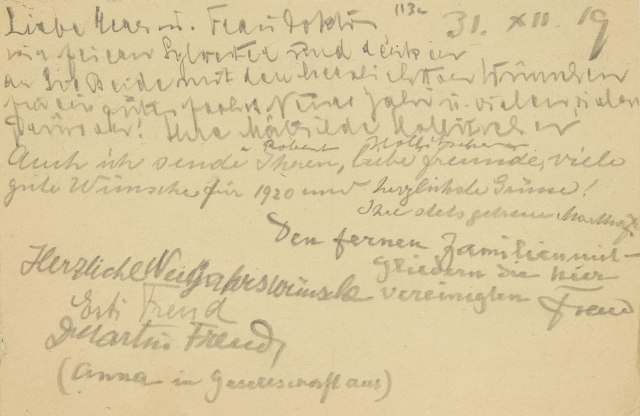 Liebe Herr u. Frau Doktor 113a 31. XII. 19
wir feiern Sylvester und denken
an Sie Beide mit den herzlichsten Wünschen
für ein gutes Neues Jahr u. vielen
Ihre Mathilde Hollitscher
Robert Hollitscher
Auch ich sende Ihnen, liebe Freunde, viele
gute Wünsche für 1920 und herzlichste Grüsse!
Ihre stets getreue
Den fernen Familienmit-
gliedern die hier
vereinigten Freud
Herzliche Neujahrswünsche
Esti Freud
Dr Martin Freud
(Anna in Gesellschaft aus)